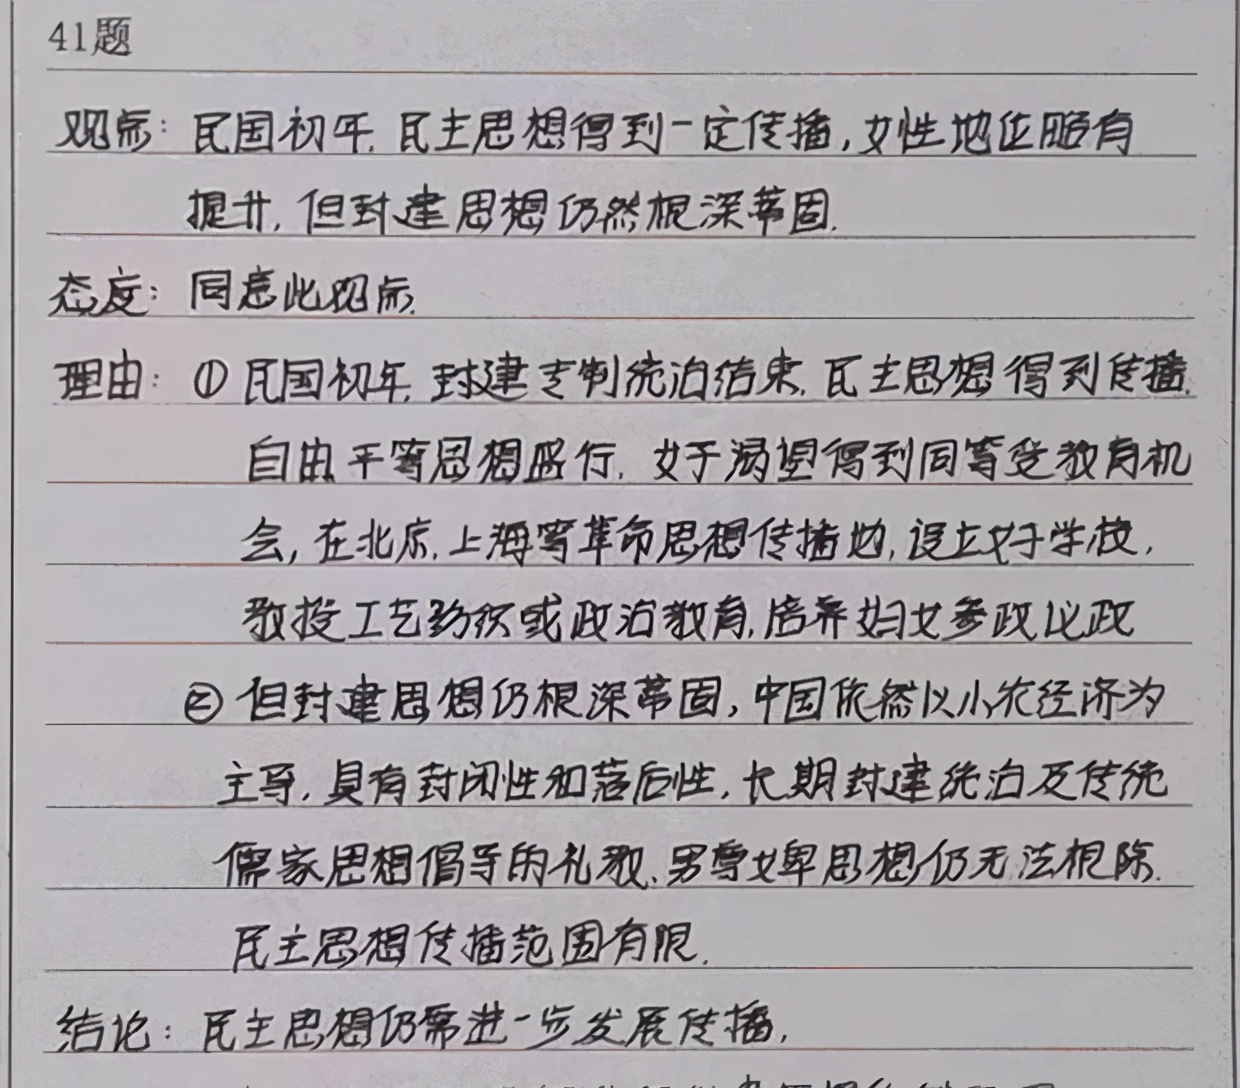 41题
观点：民国初年,民主思想得到一定传播,女性地位略有
提升,但封建思想仍然根深蒂固.
态度：同意此观点.
理由：①民国初年,封建专制统治结束,民主思想得到传播,
自由平等思想盛行,女子渴望得到同等受教育机
会,在北京,上海等革命思想传播地,设立女子学校,
教授工艺纺织或政治教育,培养妇女参政议政
②但封建思想仍根深蒂固,中国依然以小农经济为
主导,具有封闭性和落后性,长期封建统治及传统
儒家思想倡导的礼教,男尊女卑思想仍无法根除.
民主思想传播范围有限.
结论：民主思想仍需进一步发展传播.